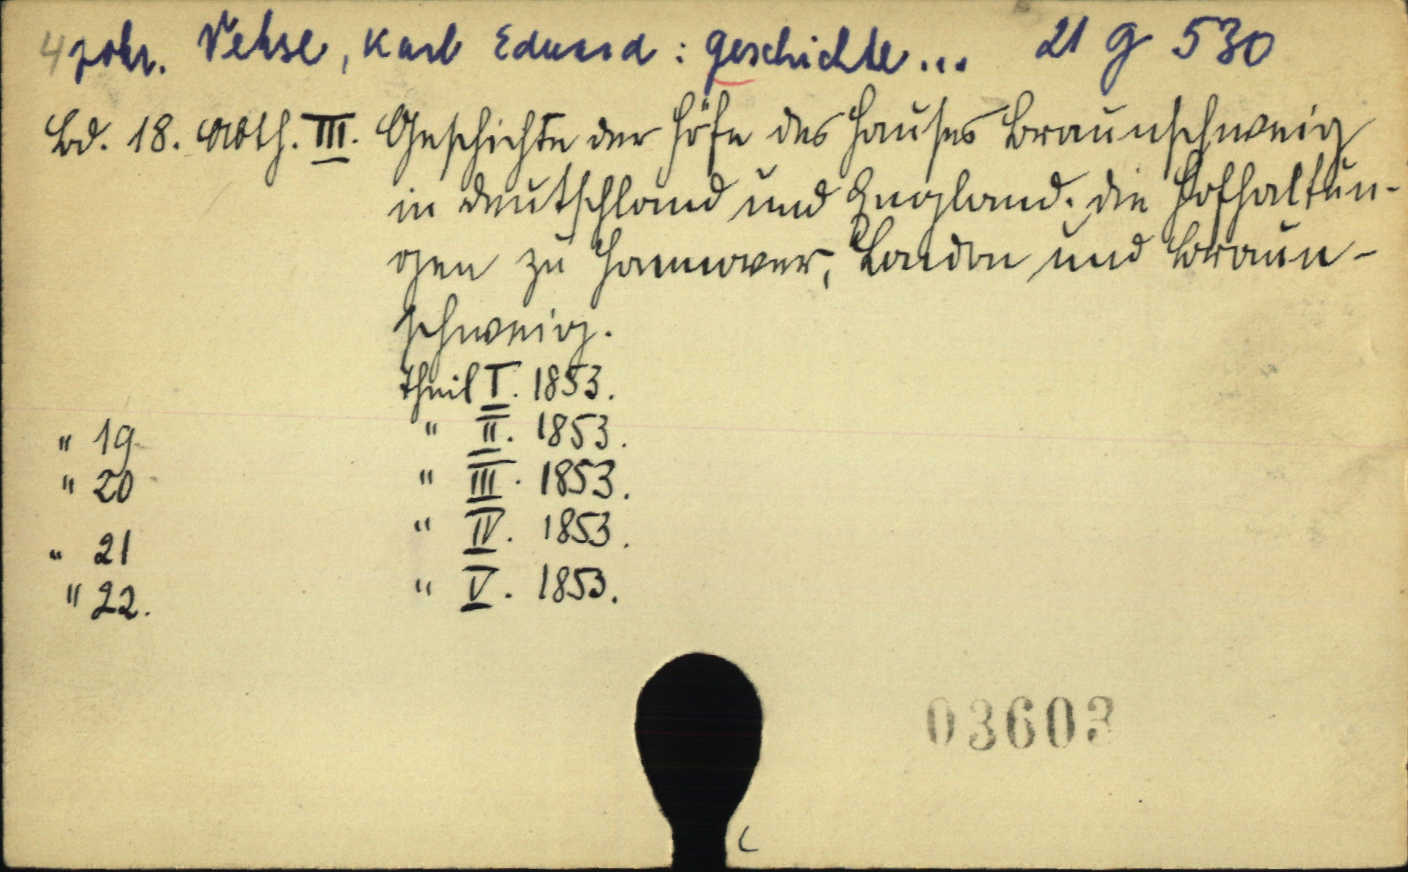 4 forts. Vehse, Karl Eduard : Geschichte... 21 g 530
Bd. 18. Abth. III. Geschichte der Höfe des Hauses Braunschweig
in Deutschland und England. Die Hofhaltun-
gen zu Hannover, London und Braun-
schweig.
Theil I. 1853.
" 19 " II. 1853.
" 20 " III. 1853.
" 21 " IV. 1853.
" 22. " V. 1853.
03603